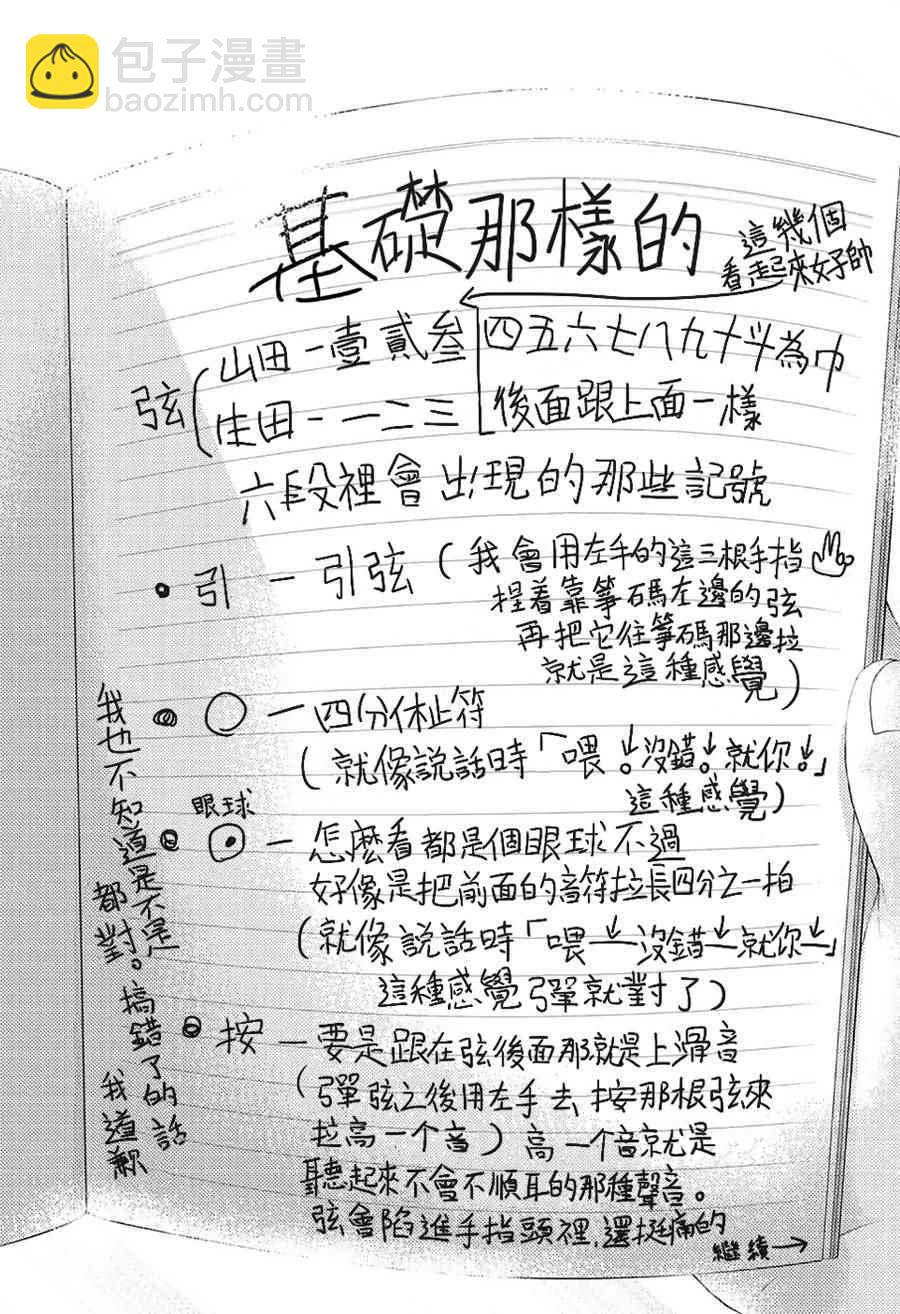 包子漫畫
baozimh.com
基礎那樣的
這幾個
看起來好帥
弦
山田－壹貳參 四五六七八九十斗為巾
生田－一二三 後面跟上面一樣
六段裡會出現的那些記號
・引－引弦（我會用左手的這三根手指
捏着靠箏碼左邊的弦
再把它往箏碼那邊拉
就是這種感覺）
○－四分休止符
（就像說話時「喂↓。沒錯↓。就你↓。」
這種感覺）
眼球
－怎麼看都是個眼球不過
好像是把前面的音符拉長四分之一拍
（就像說話時「喂→沒錯→就你→」
這種感覺彈就對了）
按－要是跟在弦後面那就是上滑音
（彈弦之後用左手去按那根弦來
拉高一个音）高一个音就是
聽起來不會不順耳的那種聲音。
弦會陷進手指頭裡，還挺痛的
繼續→
我也不知道是不是
都對。搞錯了的話
我道歉